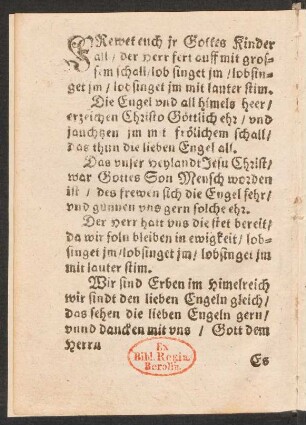 FRewet euch jr Gottes Kinder
all / der Herr fert auff mit gros-
sem schall / lob singet jm / lobsin-
get jm / lob singet jm mit lauter stim.
Die Engel vnd all himels heer /
erzeichen Christo Göttlich ehr / vnd
jauchtzen jm mit frölichem schall /
das thun die lieben Engel all.
Das vnser Heylandt Jesu Christ /
war Gottes Son Mensch worden
ist / des frewen sich die Engel sehr /
vnd günnen vns gern solche ehr.
Der Herr hatt vns die stet bereit /
da wir soln bleiben in ewigkeit / lob-
singet jm / lobsinget jm / lobsinget jm
mit lauter stim.
Wir sind Erben im Himelreich
wir sindt den lieben Engeln gleich /
das sehen die lieben Engeln gern /
vnnd dancken mit vns / Gott dem
Herrn
Ex
Bibl. Regia.
Berolin.
Es